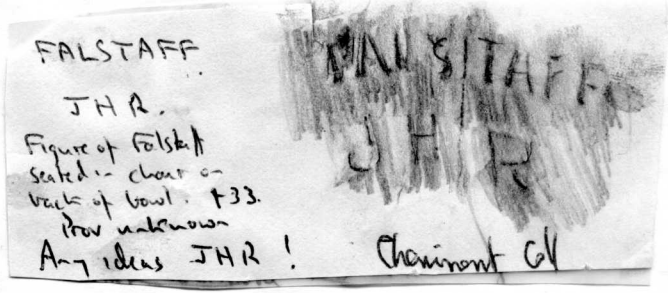 FALSTAFF
JHR.
Figure of Falstaff
seated in chair on
back of bowl. +33.
Prov unknown
Any ideas JHR !
FALSTAFF
JHR
Coll